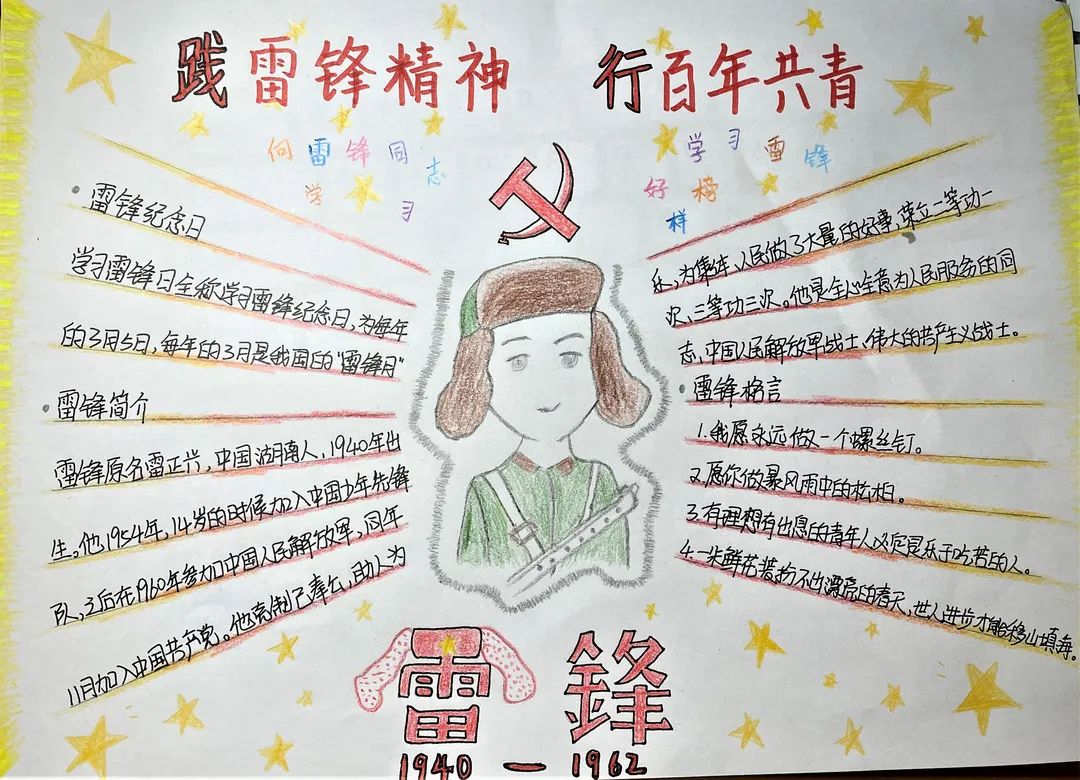 践雷锋精神 行百年共青
向雷锋同志
学习
学习雷锋
好榜
样
雷锋纪念日
学习雷锋日全称学习雷锋纪念日，为每年
的3月5日，每年的3月是我国的“雷锋月”
雷锋简介
雷锋原名雷正兴，中国湖南人，1940年出
生。他1954年，14岁的时候加入中国少年先锋
队，之后在1960年参加中国人民解放军，同年
11月加入中国共产党。他克制己奉公，助人为
乐，为集体、人民做了大量的好事，荣立二等功一
次，三等功三次。他是全心全意为人民服务的同
志，中国人民解放军战士、伟大的共产主义战士。
雷锋格言
1.我愿永远做一个螺丝钉。
2.愿你做暴风雨中的松柏。
3.有理想有出息的青年人必定是乐于吃苦的人。
4.一朵鲜花装扮不出漂亮的春天，世人进步才能移山填海。
雷 鋒
1940 — 1962